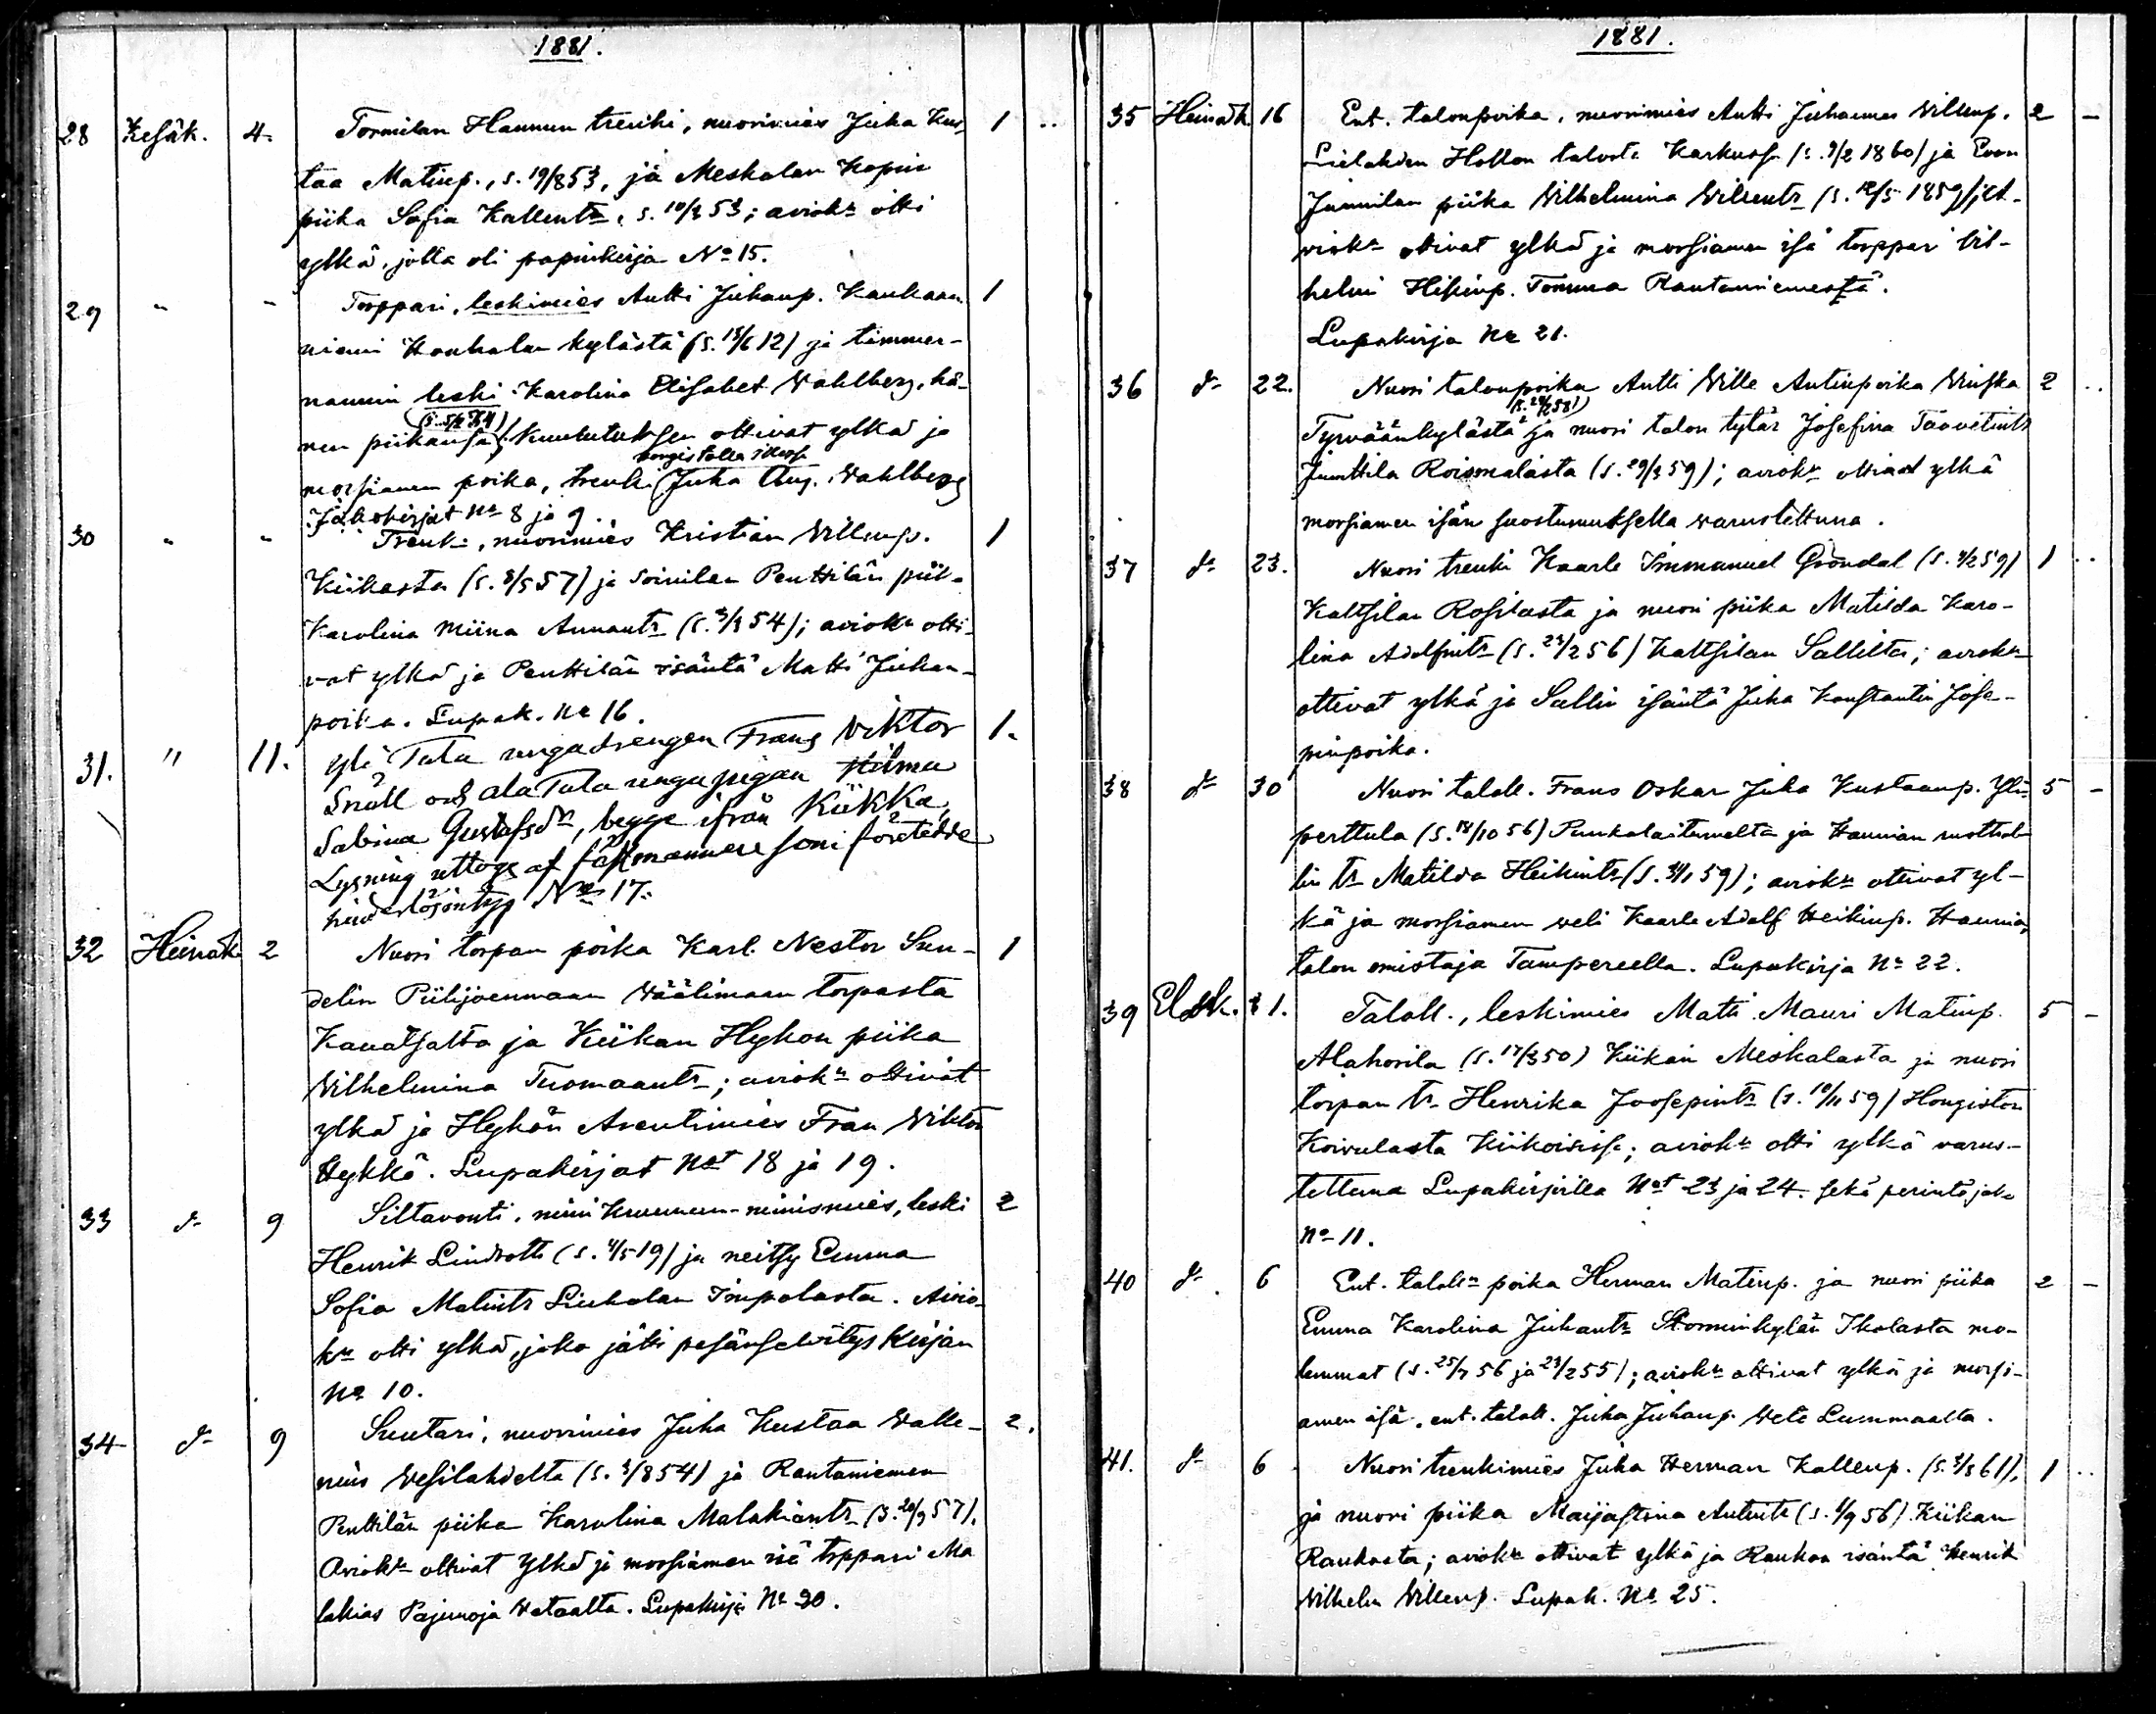 1881.
28 Kesäk. 4. Tormilan Hannun trenki, nuorimies Juha Kus- 1 ..
taa Matinp., s. 19/8 53, ja Meskalan Kopin
piika Sofia Kallentr., s. 10/3 53; aviokn otti
ylkä, jolla oli papinkirja No 15.
29 " - Torppari, leskimies Antti Juhanp. Kankaan- 1
niemi Kouhalan kylästä (s. 15/6 12) ja timmer-
mannin leski Karolina Elisabet Wahlberg, hä-
nen piikansa (s. 5/2 34). Kuulutuksen ottivat ylkä ja
morsiamen poika, trenki Juha Aug. Wahlberg
Jakokirjat No 8 ja 9
30 " " Trenki, nuorimies Kristian Villenp. 1
Kiikasta (s. 5/5 57) ja Soinilan Penttilän piik-
Karolina Miina Annantr (s. 3/3 54); aviokn otti-
vat ylkä ja Penttilän isäntä Matti Juhan-
poika. Lupak. No 16.
31. " 11. Yli Tula unga drengen Frans Viktor 1.
Snäll och ala Tula unga pigan Hilma
Sabina Gustafsdr, begge ifrån Kiikka,
Lysning uttogs af fästmannen som företedde
hinderlösintyg No 17.
32 Heinäk 2 Nuori torpan poika Karl Nestor Sun- 1
delin Piilijoenmaan Wäälimaan torpasta
Kauatsalta ja Kiikan Hykön piika
Wilhelmina Tuomaantr; aviokn ottivat
ylkä ja Hykön Arentimies Frans Wiktor
Hykkö. Lupakirjat Not 18 ja 19.
33 do 9 Siltavouti, nimi Kruunun-nimismies, leski 2
Henrik Lindroth (s. 4/5 19) ja neitsy Emma
Sofia Matintr Liuhalan Impolasta. Avio-
kn otti ylkä, joka jätti pesänselvitys Kirjan
No 10.
34 do 9 Suutari, nuorimies Juha Kustaa Walle- 2.
nius Wesilahdelta (s. 3/8 54) ja Rautaniemen
Penttilän piika Karolina Malakiantr (s. 20/9 57).
Aviokn ottivat ylkä ja morsiamen isä torppari Ma
lakias Pajunoja Wataalta. Lupakirja No 20.
1881.
35 Heinäk. 16 Ent. talonpoika, nuorimies Antti Juhannes Villenp. 2 -
Lielahden Hollon talosta Karkussa (s. 9/2 1860) ja Evon
Junnilan piika Wilhelmina Willentr (s. 12/5 1859)
ottivat ylkä ja morsiamen isä torppari Vil-
helmi Heikinp. Tomma Rautaniemestä.
Lupakirja No 21.
36 do 22. Nuori talonpoika Antti Wille Antinpoika Uuska 2 ..
Tyrväänkylästä ja nuori talon tytär Josefina Taavetintr
Junttila Roismalasta (s. 29/3 59); aviokn ottivat ylkä
morsiamen isän suostumuksella varustettuna.
37 do 23. Nuori trenki Kaarle Immanuel Gröndal (s. 4/2 59) 1 ..
Kaltsilan Rosilasta ja nuori piika Matilda Karo-
lina Adolfintr (s. 24/2 56) Kaltsilan Sallilta; aviokn
ottivat ylkä ja Sallin isäntä Juha Konstantin Jose-
pinpoika.
38 do 30 Nuori taloll. Frans Oskar Juha Kustaanp. Yli- 5 -
perttula (s. 18/10 56) Punkalaitumelta ja Haunian
tr Matilda Heikintr (s. 31/1 59); aviokn ottivat yl-
kä ja morsiamen veli Kaarle Adolf Heikinp. Haunia,
talon omistaja Tampereella. Lupakirja No 22.
39 Elok. 1. Taloll., leskimies Matti Mauri Matinp. 5 -
Alahosila (s. 17/3 50) Kiikan Meskalasta ja nuori
torpan tr Henrika Joosepintr (s. 10/11 59) Hongiston
Koivulasta Kiikoisissa; aviokn otti ylkä varus-
tettuna Lupakirjoilla Not 23 ja 24. sekä perintöjak.
No 11.
40 do 6 Ent. talolln poika Herman Matinp. ja nuori piika 2 -
Emma Karolina Juhantr Stomminkylän Ikolasta mo-
lemmat (s. 25/7 56 ja 23/2 55); aviokn ottivat ylkä ja morsi-
amen isä, ent. taloll. Juha Juhanp. Wete Lummaalta.
41. do 6 Nuori trenkimies Juha Herman Kallenp. (s. 3/3 61), 1 ..
ja nuori piika Maijastina Antintr (s. 1/9 56) Kiikan
Raukosta; aviokn ottivat ylkä ja Raukon isäntä Henrik
Vilhelm Villenp. Lupak. No 25.